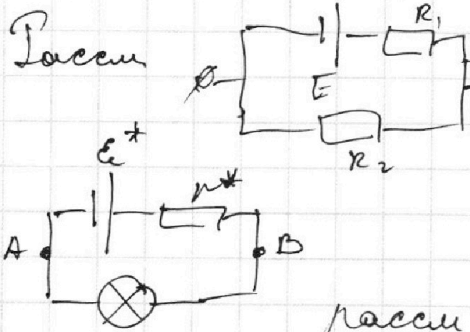 Рассм
R₁
E
R₂
ℰ* r*
A B
рассм